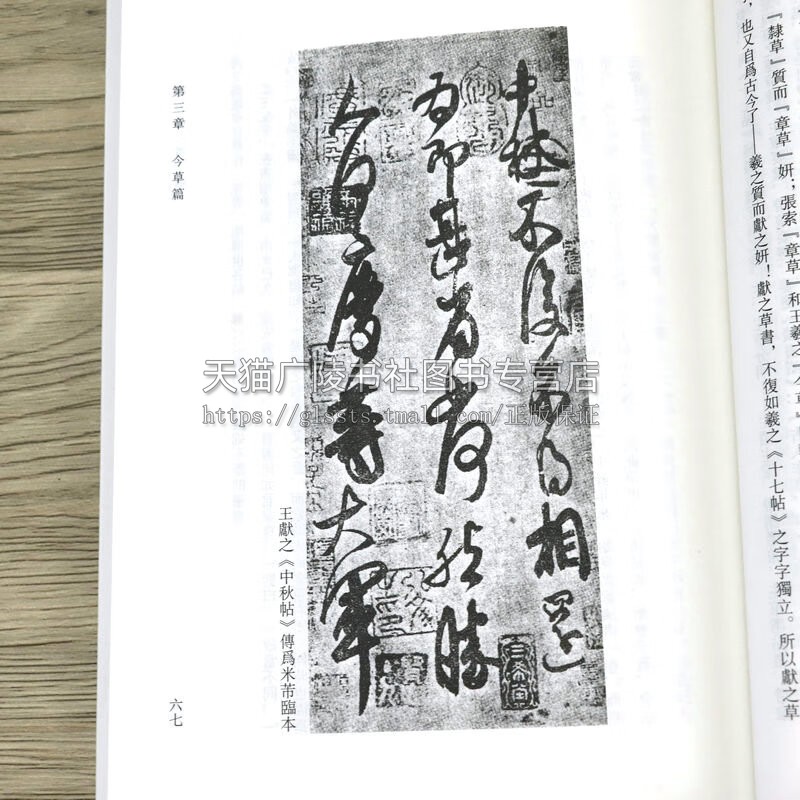 『隸草』質而『章草』妍；張索『章草』和王羲之
，也又自爲古今了——羲之質而獻之妍！獻之草書，不復如羲之《十七帖》之字字獨立。所以獻之草
中秋不復不得相還
爲即甚省如何然勝
人何慶等大軍
王獻之《中秋帖》傳爲米芾臨本
第三章　今草篇
六七
天猫广陵书社图书专营店
https://glssts.tmall.com/正版保证